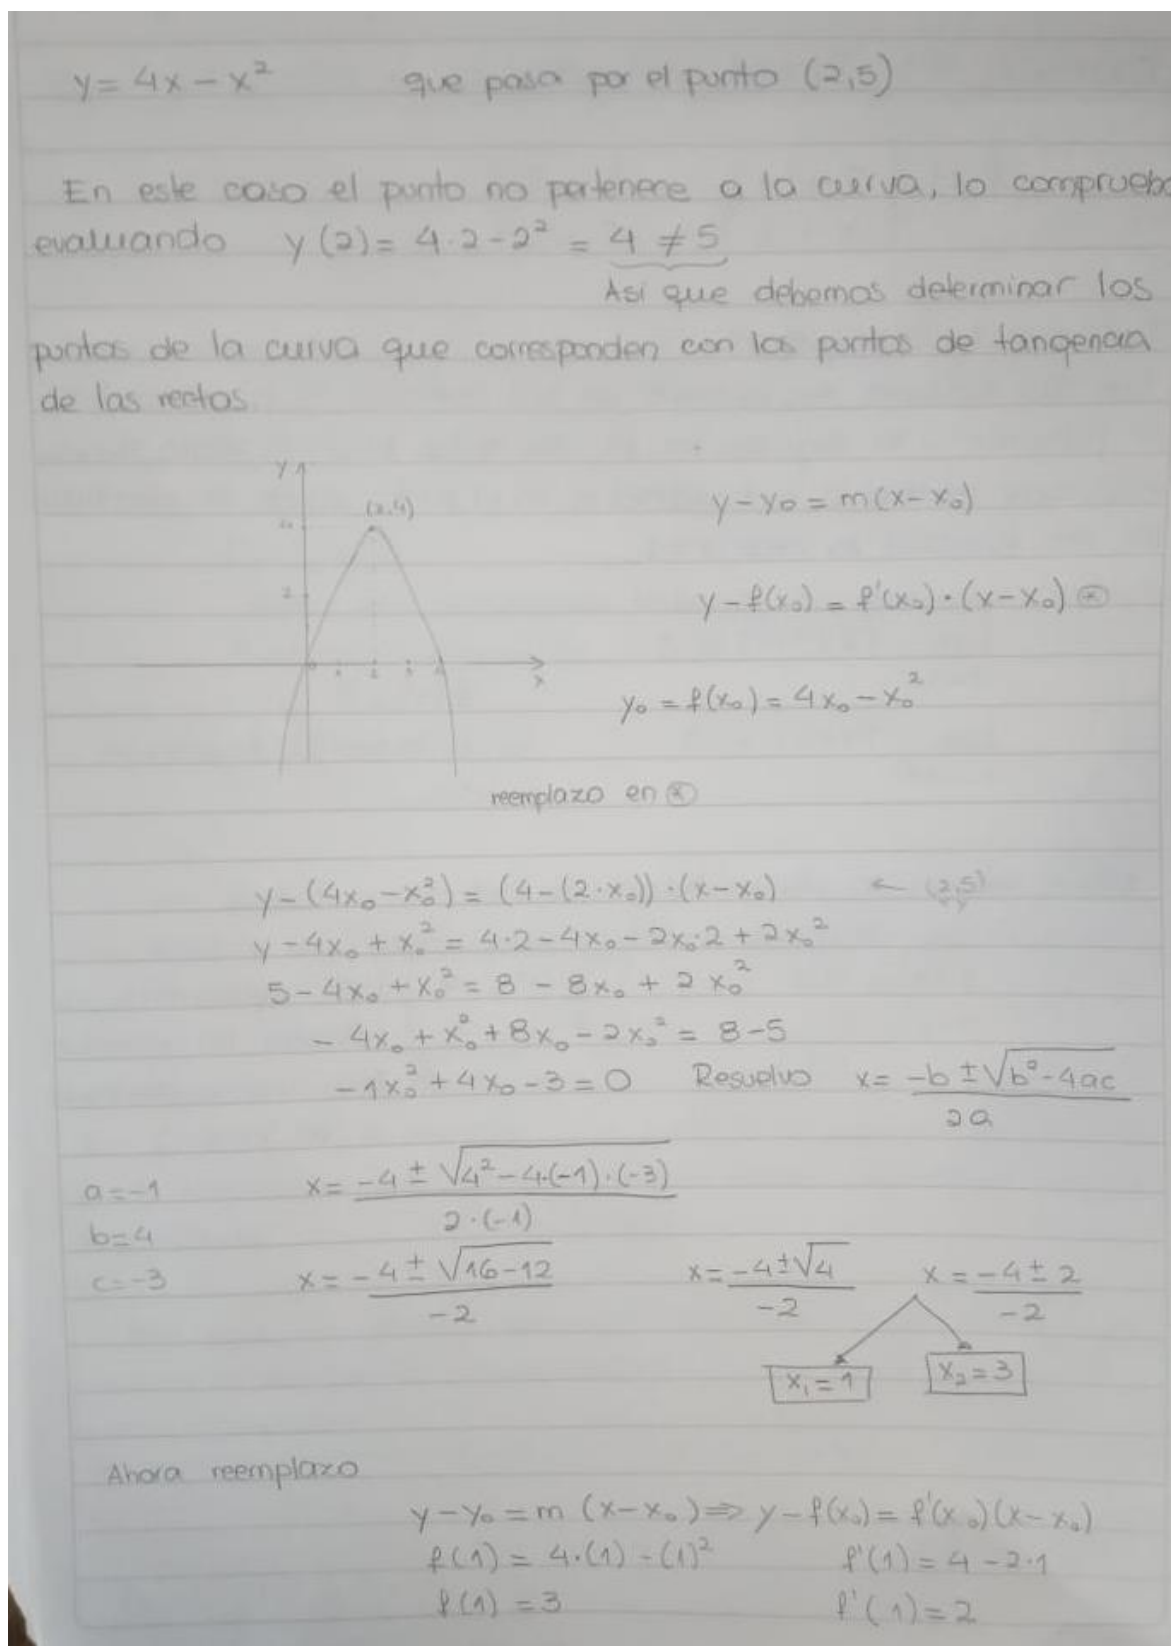 y = 4x - x² que pasa por el punto (2,5)
En este caso el punto no pertenece a la curva, lo compruebo
evaluando y(2) = 4·2 - 2² = 4 ≠ 5
Así que debemos determinar los
puntos de la curva que corresponden con los puntos de tangencia
de las rectas.
y
(2,4)
4
2
0 1 2 3 4
x
y - y₀ = m(x - x₀)
y - f(x₀) = f'(x₀)·(x - x₀) ⊛
y₀ = f(x₀) = 4x₀ - x₀²
reemplazo en ⊛
y - (4x₀ - x₀²) = (4 - (2·x₀))·(x - x₀) ← (2,5)
x y
y - 4x₀ + x₀² = 4·2 - 4x₀ - 2x₀·2 + 2x₀²
5 - 4x₀ + x₀² = 8 - 8x₀ + 2x₀²
- 4x₀ + x₀² + 8x₀ - 2x₀² = 8 - 5
- 1x₀² + 4x₀ - 3 = 0 Resuelvo x = (-b ± √(b² - 4ac)) / 2a
a = -1
b = 4
c = -3
x = (-4 ± √(4² - 4·(-1)·(-3))) / 2·(-1)
x = (-4 ± √(16 - 12)) / -2 x = (-4 ± √4) / -2 x = (-4 ± 2) / -2
x₁ = 1 x₂ = 3
Ahora reemplazo
y - y₀ = m (x - x₀) ⇒ y - f(x₀) = f'(x₀)(x - x₀)
f(1) = 4·(1) - (1)² f'(1) = 4 - 2·1
f(1) = 3 f'(1) = 2